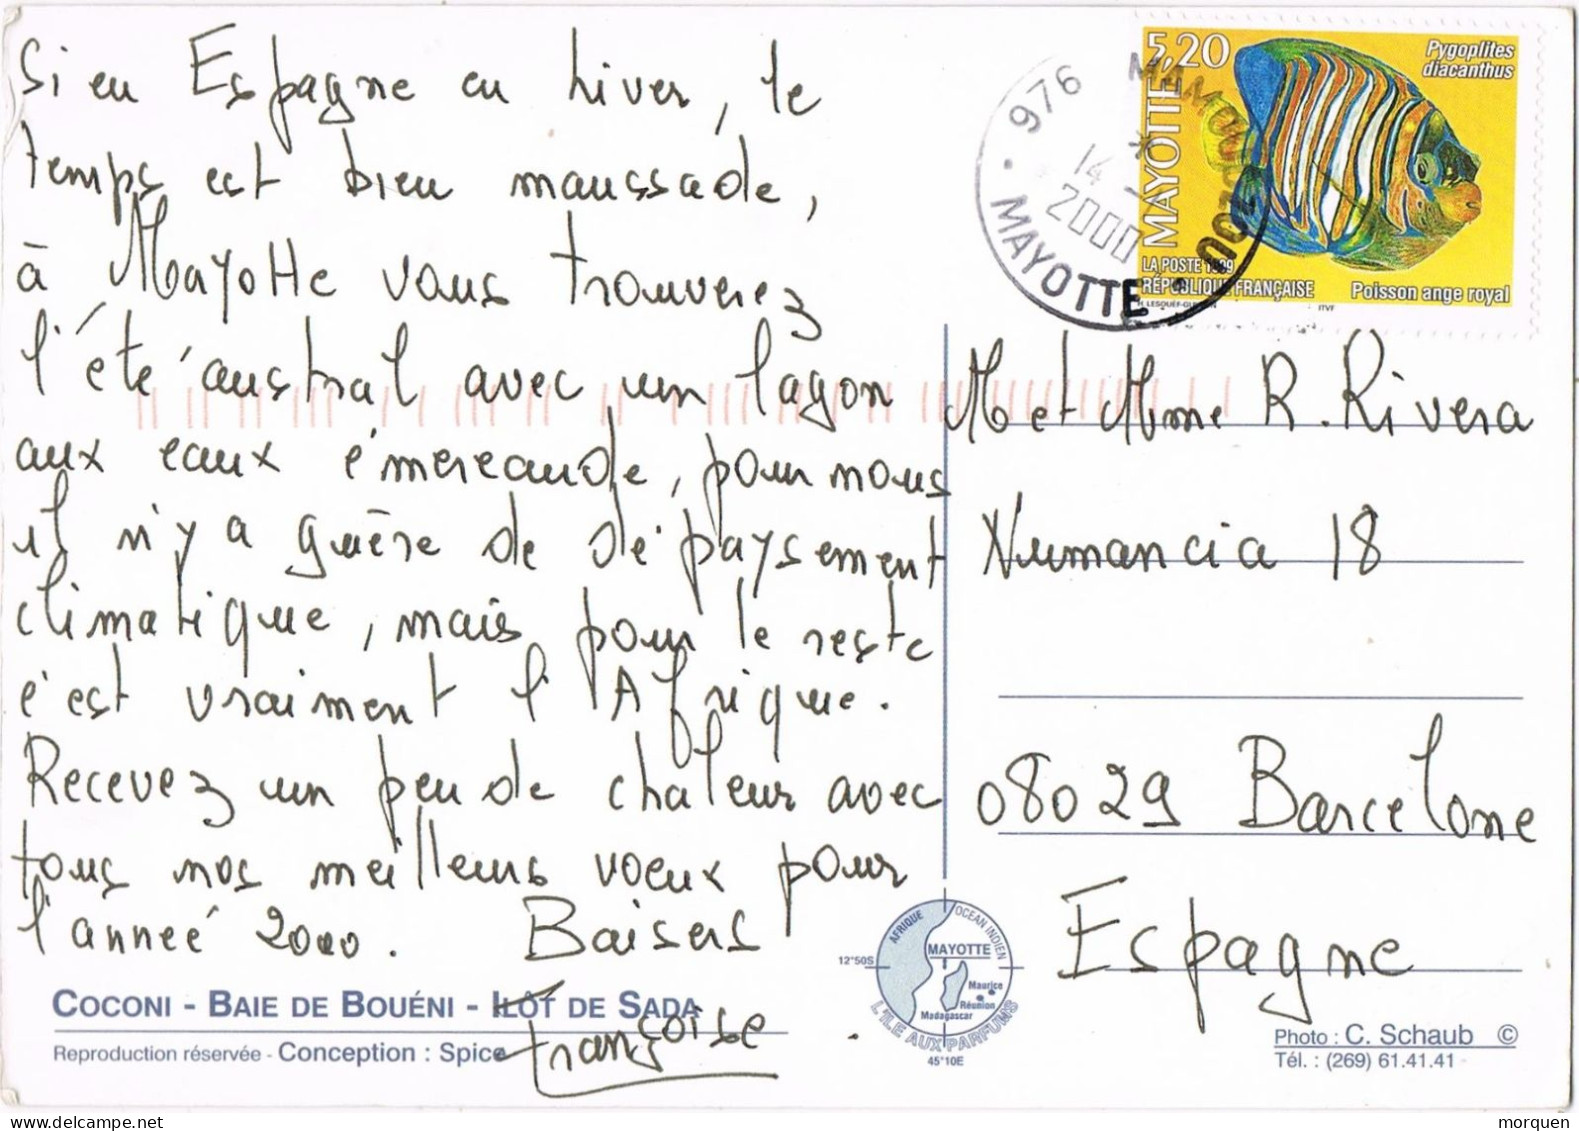 Si en Espagne en hiver, le
temps est bien maussade,
à Mayotte vous trouverez
l'été austral avec un lagon
aux eaux émereaude, pour nous
il n'y a guère de dépaysement
climatique, mais pour le reste
c'est vraiment l'Afrique.
Recevez un peu de chaleur avec
tous nos meilleurs voeux pour
l'année 2000. Baisers
Françoise
COCONI - BAIE DE BOUÉNI - ILÔT DE SADA
Reproduction réservée - Conception : Spice
5,20
MAYOTTE
Pygoplites
diacanthus
LA POSTE 1999
RÉPUBLIQUE FRANÇAISE
Poisson ange royal
ITVF
976 MAMOUDZOU
14
2000
MAYOTTE
M et Mme R. Rivera
Numancia 18
08029 Barcelone
Espagne
AFRIQUE
OCEAN INDIEN
MAYOTTE
12°50S
Maurice
Réunion
Madagascar
L'ILE AUX PARFUMS
45°10E
Photo : C. Schaub ©
Tél. : (269) 61.41.41
morquen